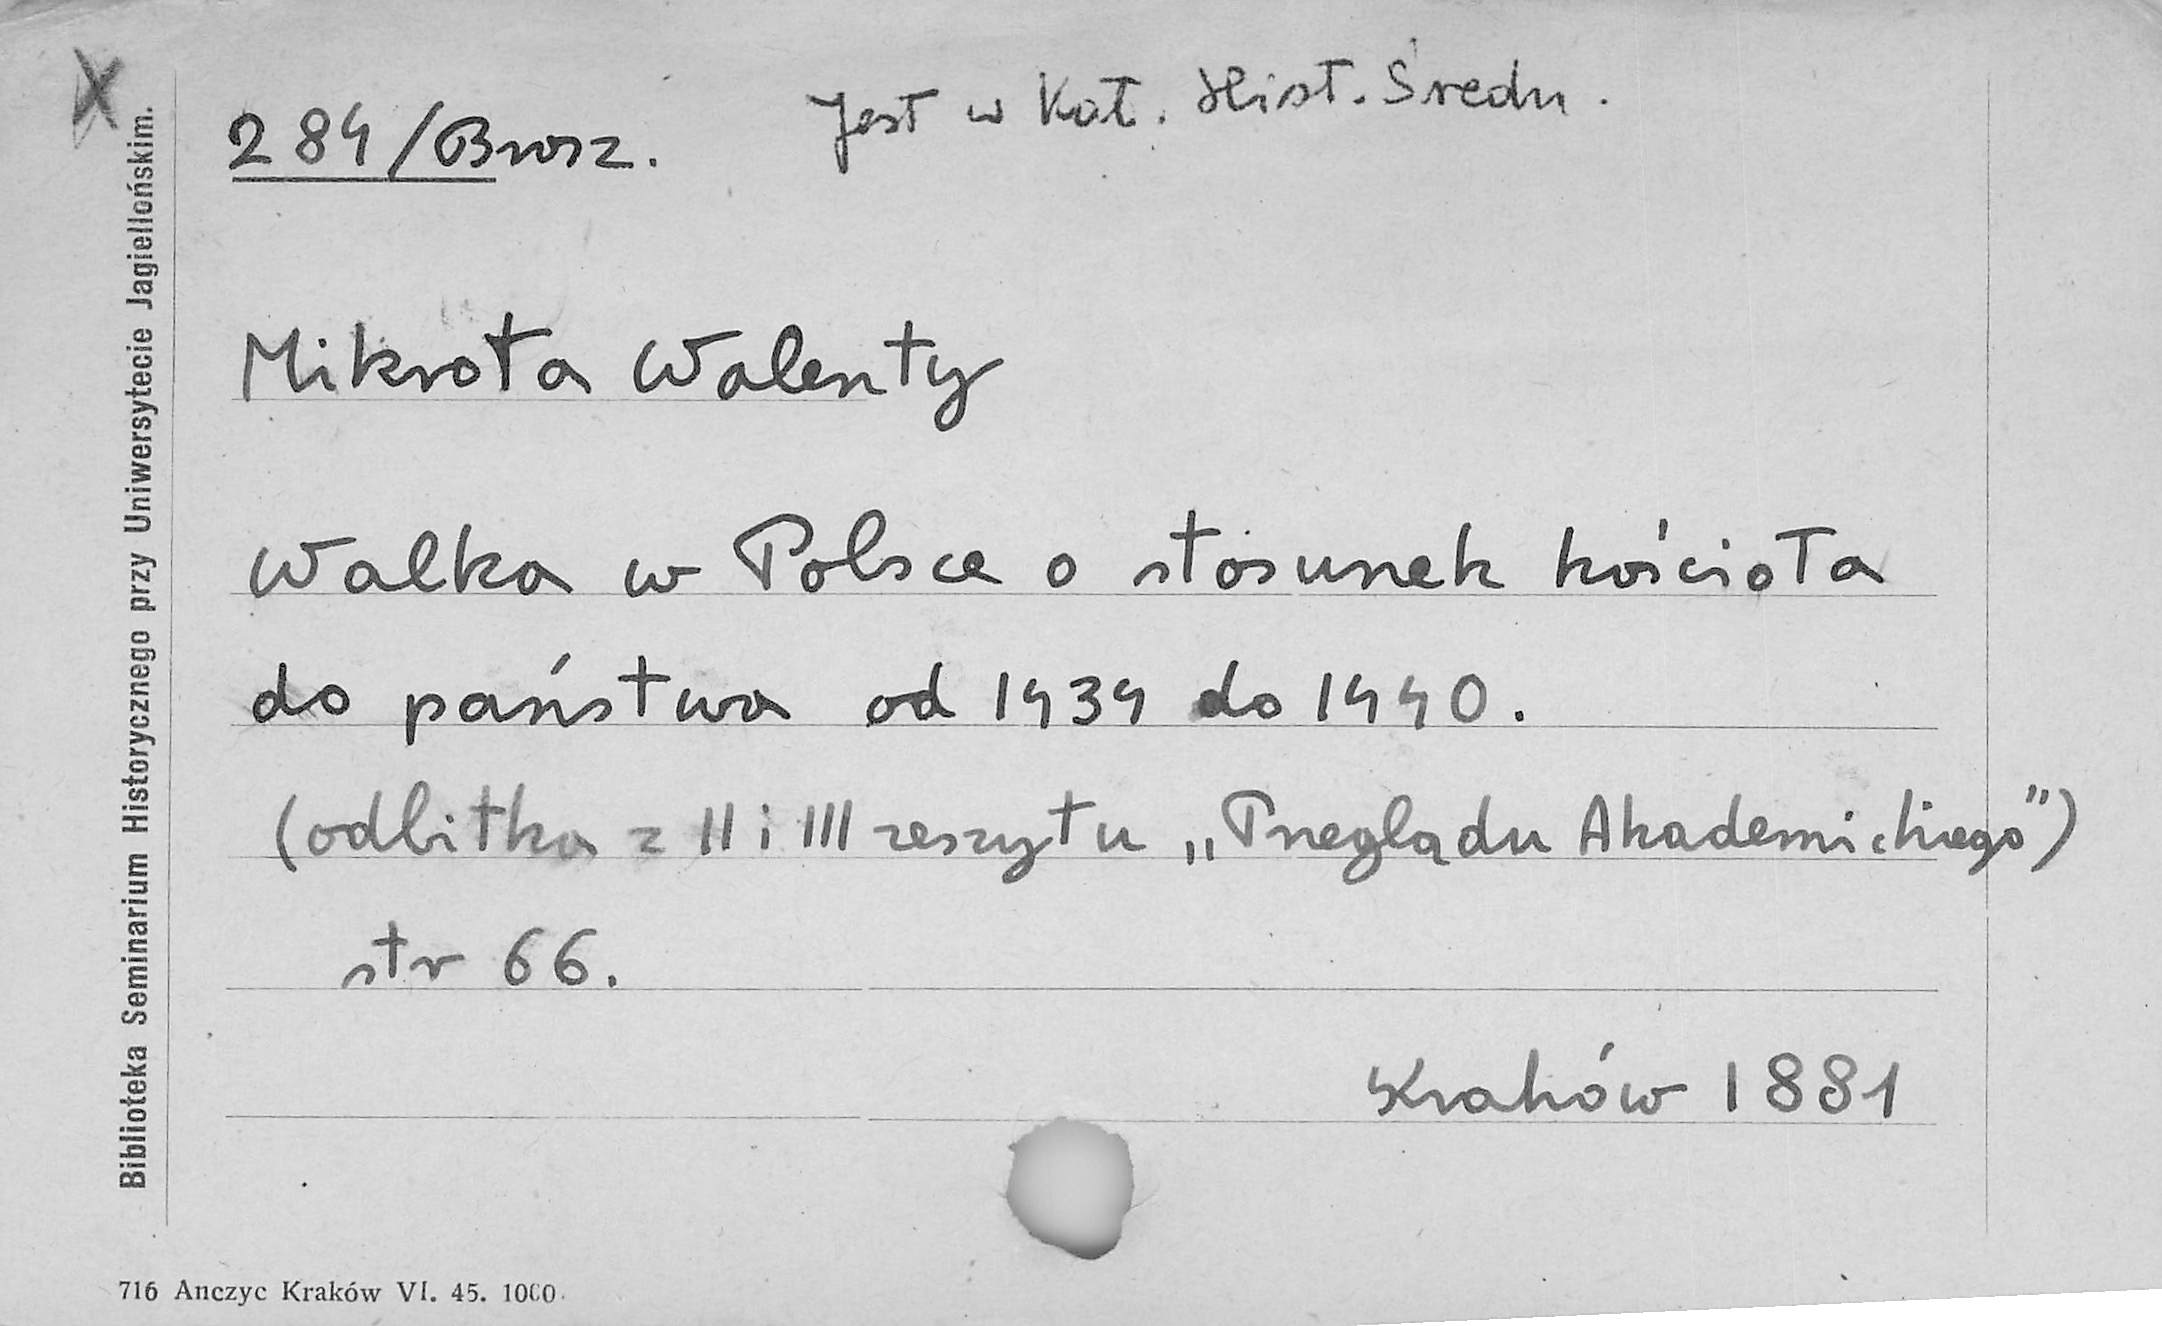 X
284/Brosz.
Jest w Kat. Hist. Średn.
Mikrota Walenty
Walka w Polsce o stosunek kościoła
do państwa od 1434 do 1440.
(odbitka z II i III zeszytu „Przeglądu Akademickiego")
str 66.
Kraków 1881
Biblioteka Seminarium Historycznego przy Uniwersytecie Jagiellońskim.
716 Anczyc Kraków VI. 45. 1000.